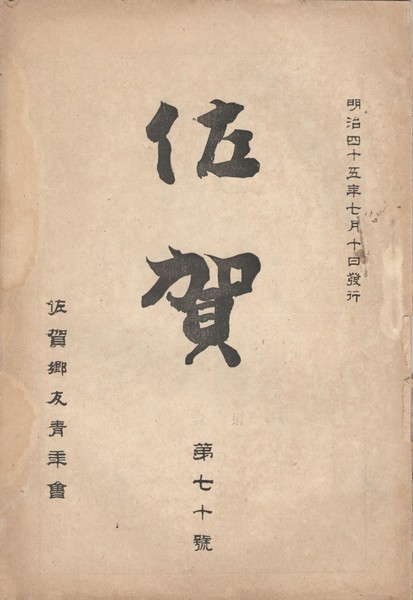 明治四十五年七月十日發行
佐賀
第七十號
佐賀鄉友青年會